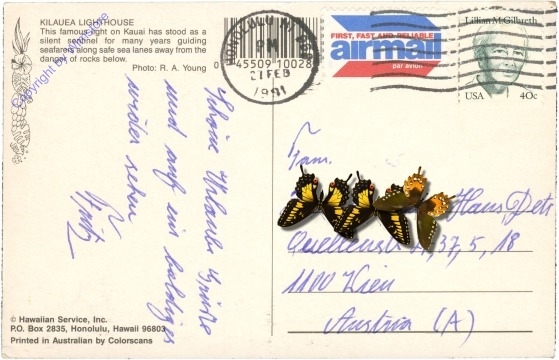 KILAUEA LIGHTHOUSE
This famous light on Kauai has stood as a
silent sentinel for many years guiding
seafarers along safe sea lanes away from the
danger of rocks below.
Photo: R. A. Young
Copyright by
HONOLULU HI
PM
27 FEB
1991
0 45509 10028
FIRST, FAST AND RELIABLE
airmail
par avion
Lillian M. Gilbreth
USA 40c
Schöne Urlaubs Grüße
und auf ein baldiges
wieder sehen
Fritz
Fam.
Hans Detr
37, 5, 18
1100 Wien
Austria (A)
© Hawaiian Service, Inc.
P.O. Box 2835, Honolulu, Hawaii 96803
Printed in Australian by Colorscans